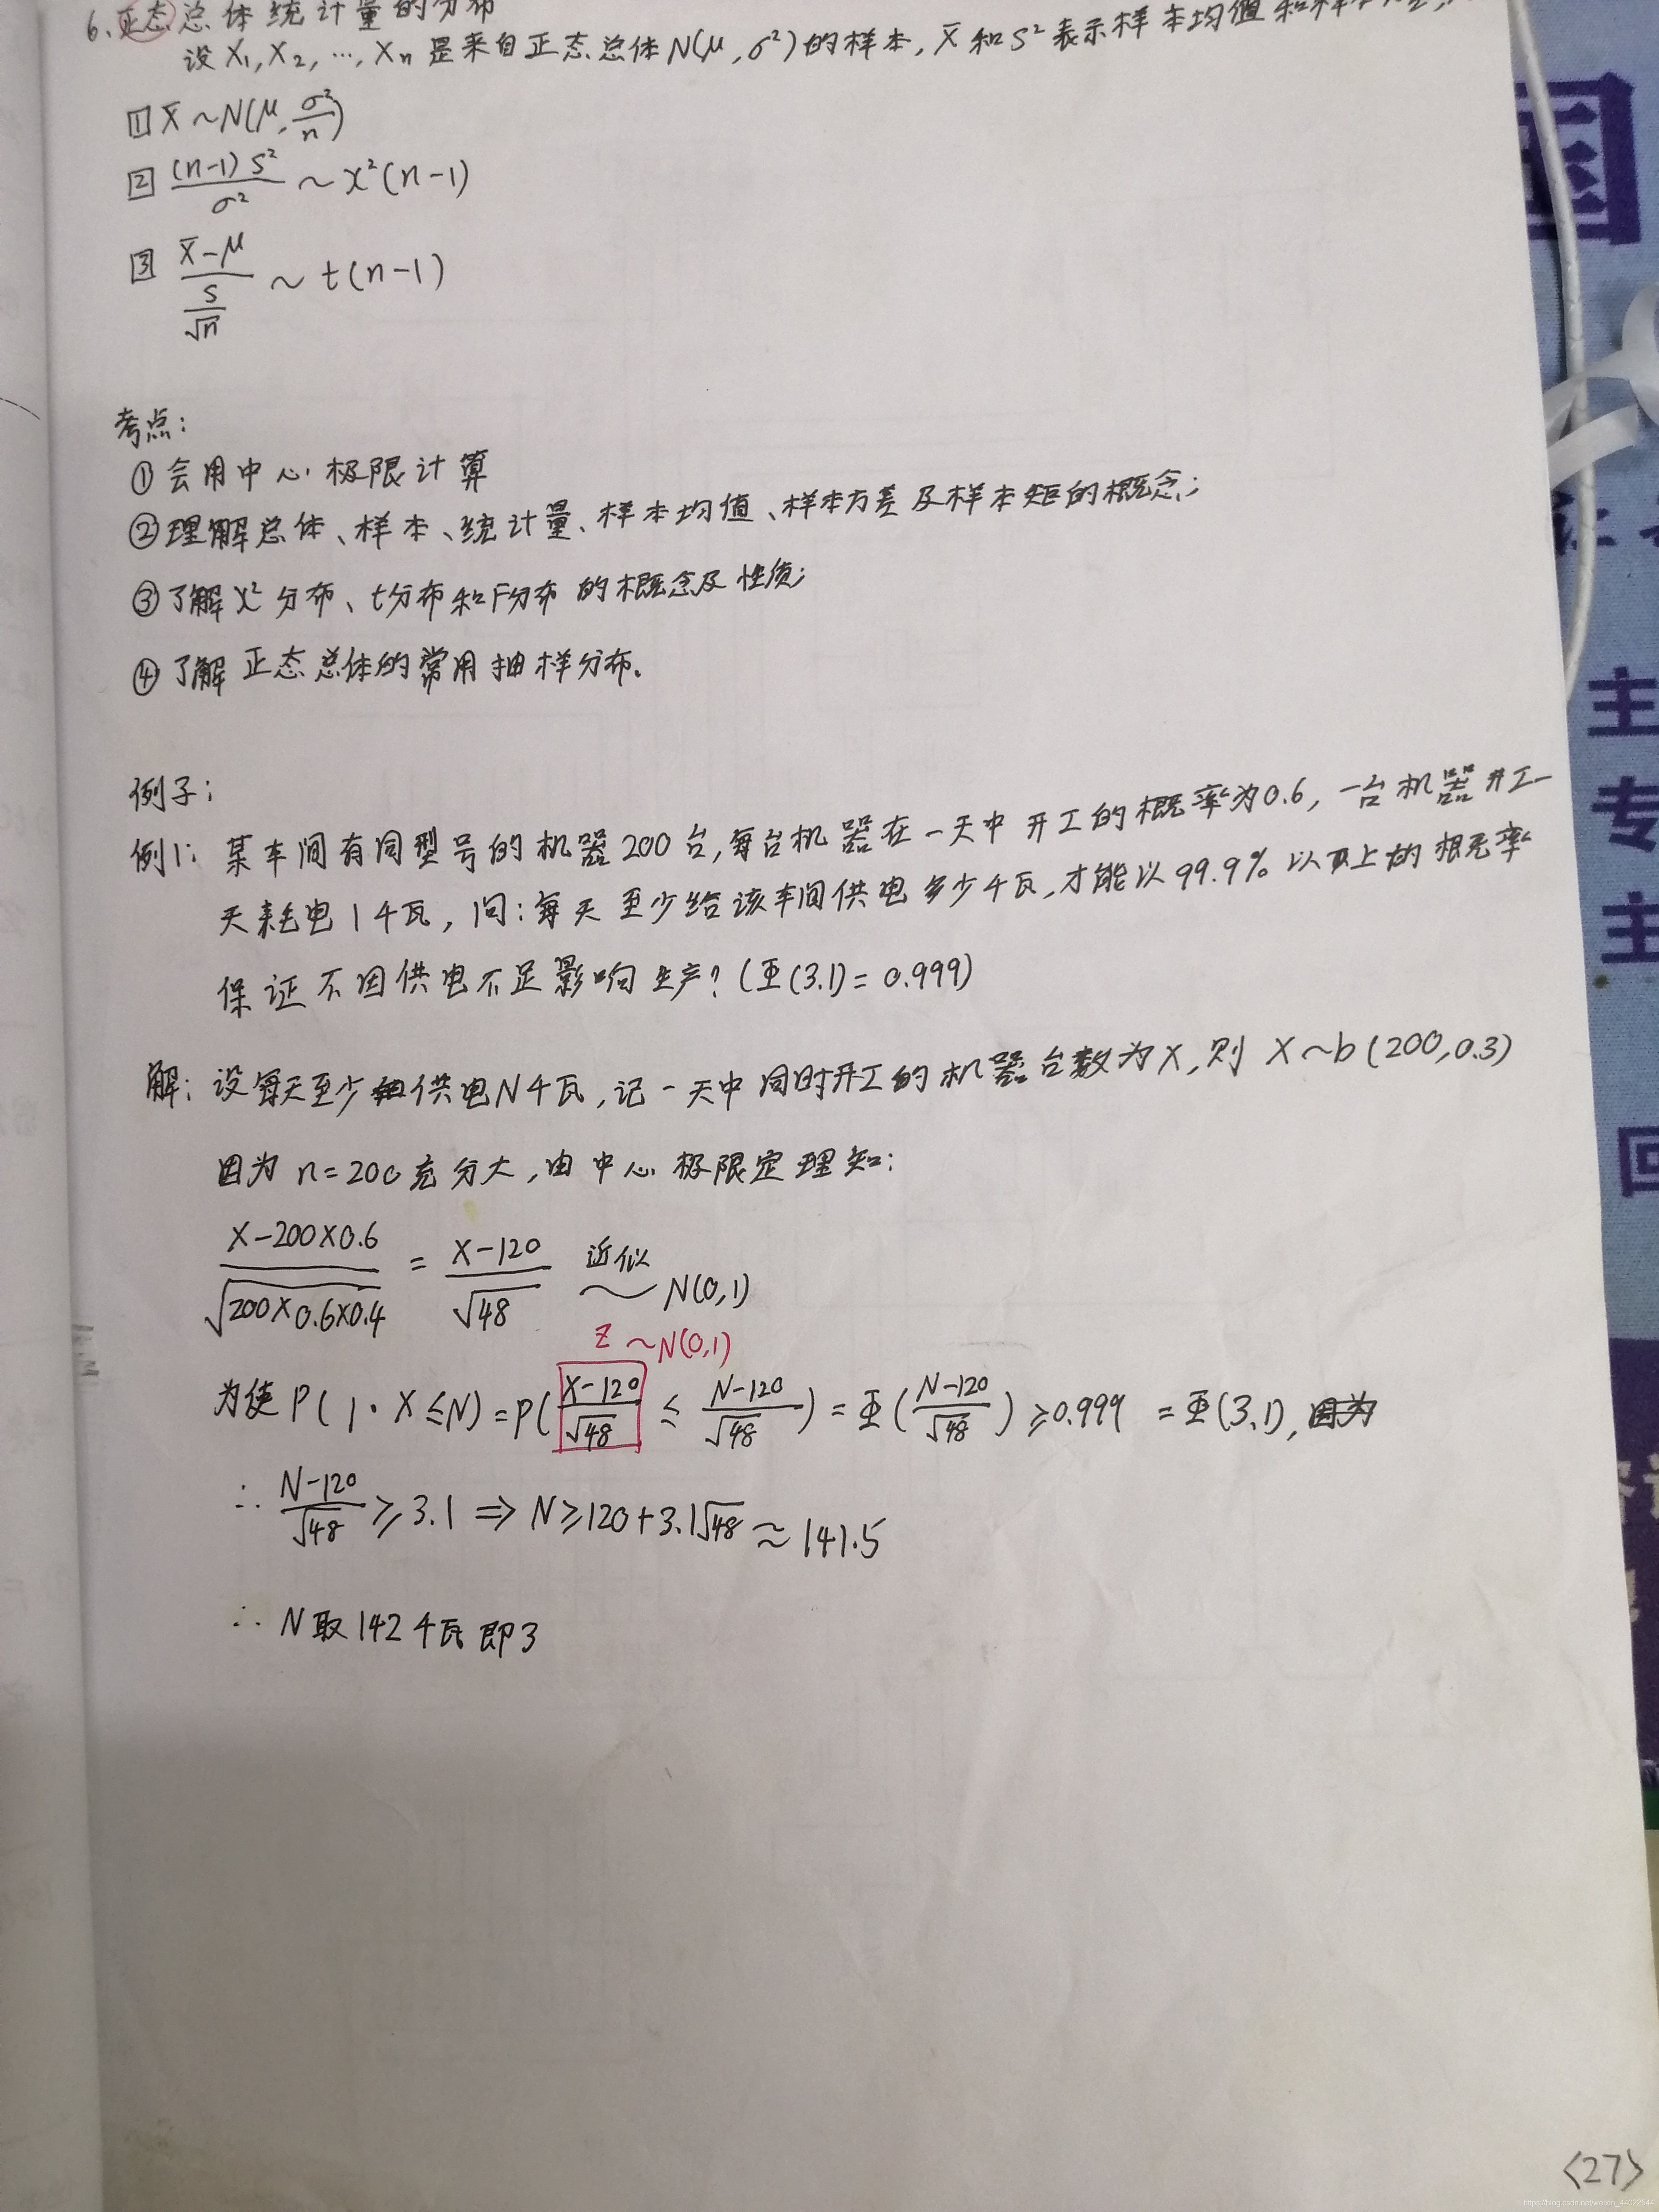 6.正态总体统计量的分布
设X₁,X₂,…,Xₙ是来自正态总体N(μ,σ²)的样本,X̄和S²表示样本均值和样本
1 X̄~N(μ,σ²/n)
2 (n-1)S²/σ² ~ χ²(n-1)
3 (X̄-μ)/(S/√n) ~ t(n-1)
考点:
①会用中心极限计算
②理解总体、样本、统计量、样本均值、样本方差及样本矩的概念;
③了解χ²分布、t分布和F分布的概念及性质;
④了解正态总体的常用抽样分布。
例子:
例1:某车间有同型号的机器200台,每台机器在一天中开工的概率为0.6,一台机器开工一
天耗电1千瓦,问:每天至少给该车间供电多少千瓦,才能以99.9%以上的概率
保证不因供电不足影响生产?(Φ(3.1)=0.999)
解:设每天至少供电N千瓦,记一天中同时开工的机器台数为X,则X~b(200,0.3)
因为n=200充分大,由中心极限定理知:
(X-200×0.6)/√(200×0.6×0.4) = (X-120)/√48 近似~ N(0,1)
Z~N(0,1)
为使P(1·X≤N)=P((X-120)/√48 ≤ (N-120)/√48)=Φ((N-120)/√48)≥0.999 =Φ(3.1),因为
∴ (N-120)/√48 ≥3.1 ⇒ N≥120+3.1√48≈141.5
∴ N取142千瓦即3
国
主
专
主
回
<27>